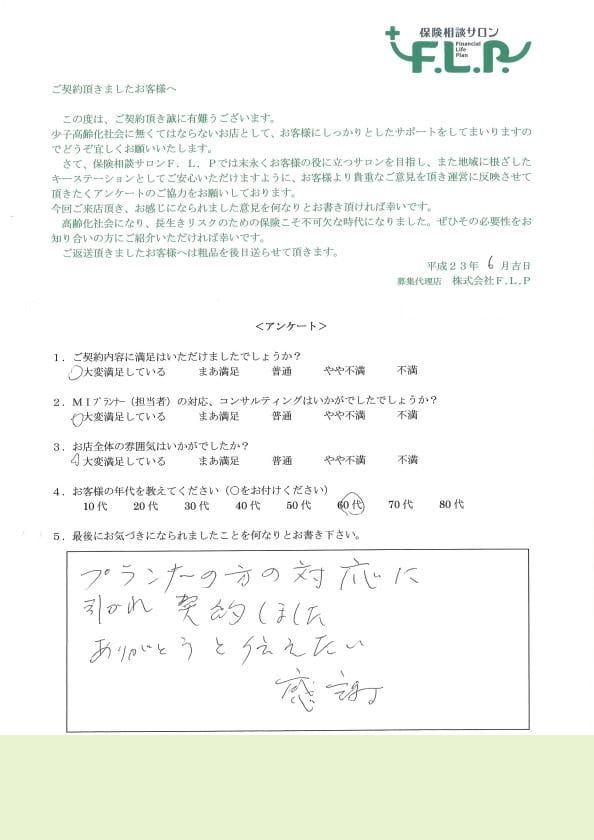 保険相談サロン
Financial
Life
Plan
F.L.P.
ご契約頂きましたお客様へ
この度は、ご契約頂き誠に有難うございます。
少子高齢化社会に無くてはならないお店として、お客様にしっかりとしたサポートをしてまいりますの
でどうぞ宜しくお願いいたします。
さて、保険相談サロンＦ．Ｌ．Ｐでは末永くお客様の役に立つサロンを目指し、また地域に根ざした
キーステーションとしてご安心いただけますように、お客様より貴重なご意見を頂き運営に反映させて
頂きたくアンケートのご協力をお願いしております。
今回ご来店頂き、お感じになられました意見を何なりとお書き頂ければ幸いです。
高齢化社会になり、長生きリスクのための保険こそ不可欠な時代になりました。ぜひその必要性をお
知り合いの方にご紹介いただければ幸いです。
ご返送頂きましたお客様へは粗品を後日送らせて頂きます。
平成２３年 6 月吉日
募集代理店 株式会社Ｆ．Ｌ．Ｐ
＜アンケート＞
１．ご契約内容に満足はいただけましたでしょうか？
大変満足している まあ満足 普通 やや不満 不満
２．ＭＩプランナー（担当者）の対応、コンサルティングはいかがでしたでしょうか？
大変満足している まあ満足 普通 やや不満 不満
３．お店全体の雰囲気はいかがでしたか？
大変満足している まあ満足 普通 やや不満 不満
４．お客様の年代を教えてください（○をお付けください）
10代 20代 30代 40代 50代 60代 70代 80代
５．最後にお気づきになられましたことを何なりとお書き下さい。
プランナーの方の対応に
引かれ 契約しました
ありがとうと伝えたい
感謝